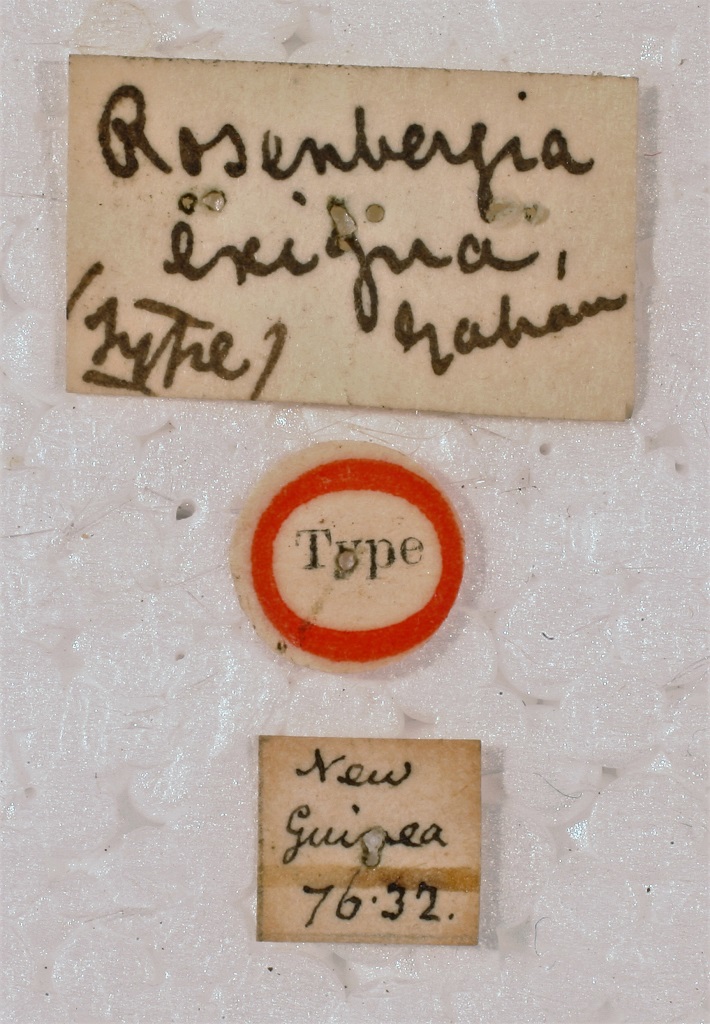 Rosenbergia
exigua,
(Type) Gahan
Type
New
Guinea
76.32.